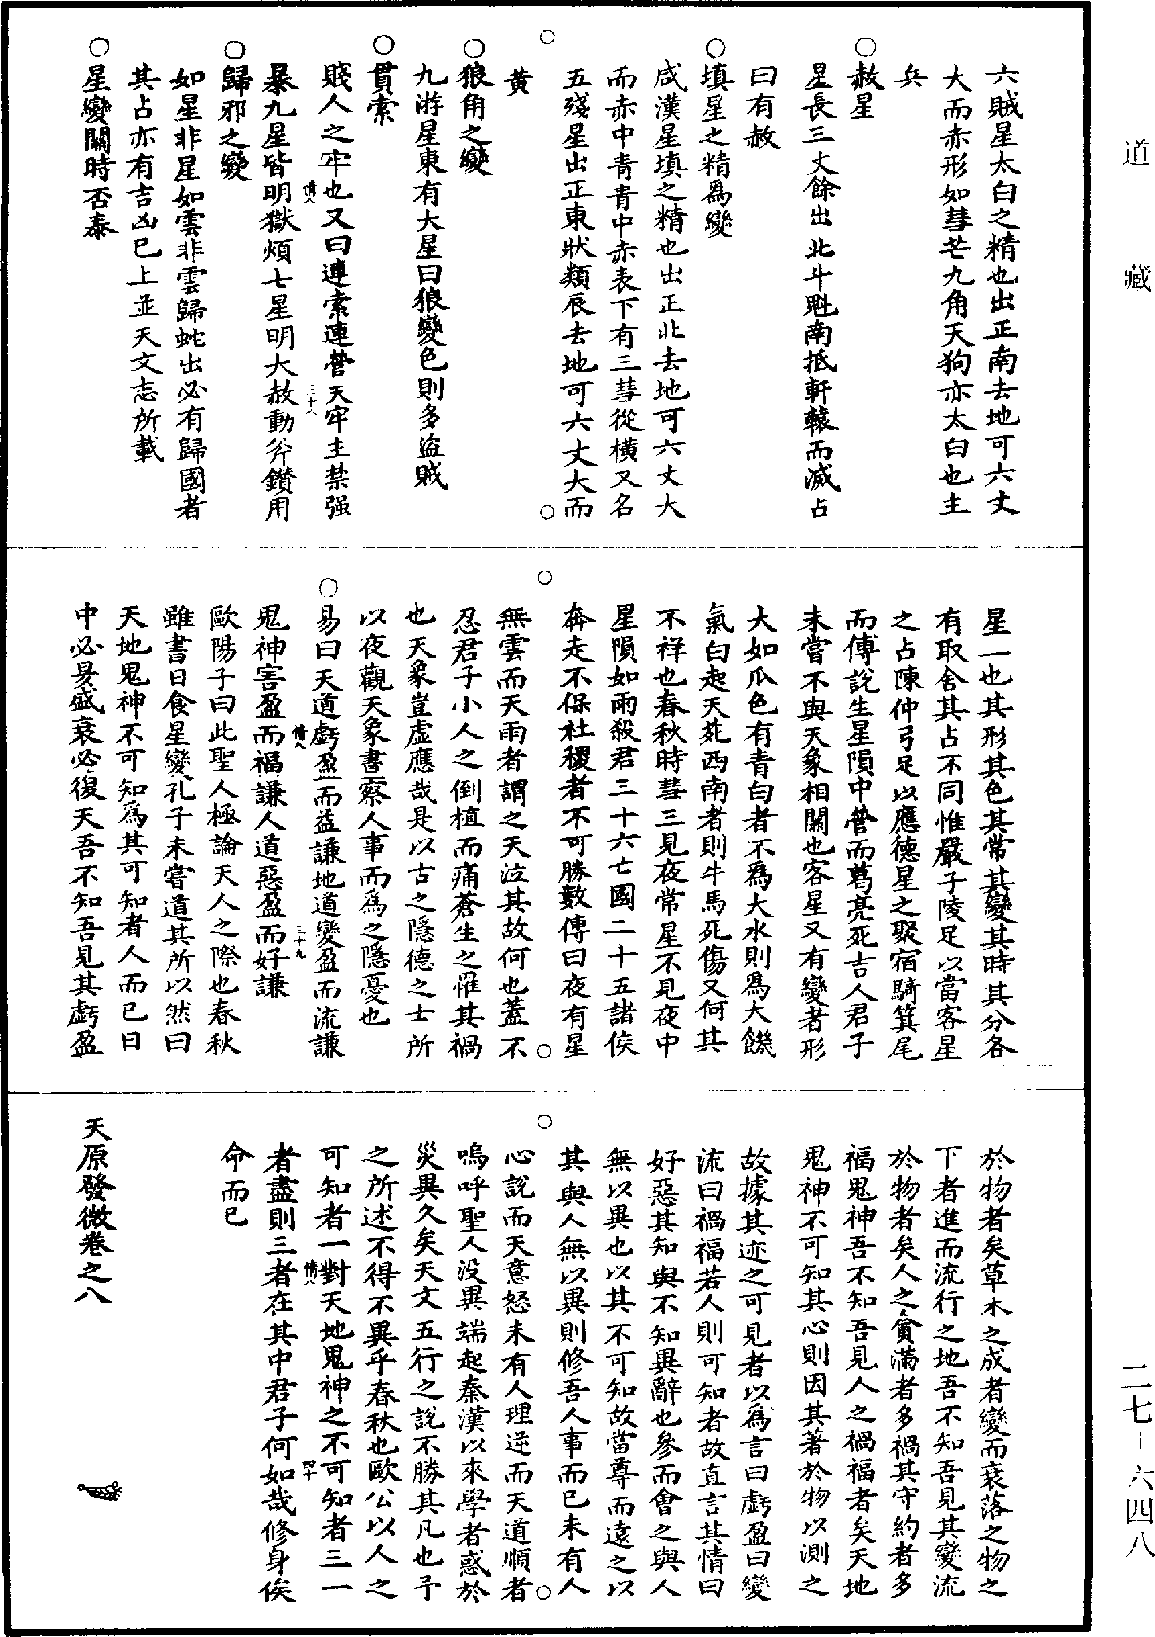 道藏
六賊星太白之精也出正南去地可六丈
大而赤形如彗芒九角天狗亦太白也主
兵
○赦星
星長三丈餘出北斗魁南抵軒轅而滅占
曰有赦
○填星之精爲變
咸漢星填之精也出正北去地可六丈大
而赤中青青中赤表下有三彗從橫又名
五殘星出正東狀類辰去地可六丈大而
黄
○狼角之變
九游星東有大星曰狼變色則多盜賊
○貫索
賤人之牢也又曰連索連營天牢主禁强
暴九星皆明獄煩七星明大赦動斧鑕用
○歸邪之變
如星非星如雲非雲歸蛇出必有歸國者
其占亦有吉凶已上並天文志所載
○星變關時否泰
星一也其形其色其常其變其時其分各
有取舍其占不同惟嚴子陵足以當客星
之占陳仲弓足以應德星之聚宿騎箕尾
而傅說生星隕中營而葛亮死吉人君子
未嘗不與天象相關也客星又有變者形
大如瓜色有青白者不爲大水則爲大饑
氣白起天苑西南者則牛馬死傷又何其
不祥也春秋時彗三見夜常星不見夜中
星隕如雨殺君三十六亡國二十五諸侯
奔走不保社稷者不可勝數傳曰夜有星
無雲而天雨者謂之天泣其故何也蓋不
忍君子小人之倒植而痛蒼生之罹其禍
也天象豈虛應哉是以古之隱德之士所
以夜觀天象書察人事而爲之隱憂也
○易曰天道虧盈而益謙地道變盈而流謙
鬼神害盈而福謙人道惡盈而好謙
歐陽子曰此聖人極論天人之際也春秋
雖書日食星變孔子未嘗道其所以然曰
天地鬼神不可知爲其可知者人而已日
中必昃盛衰必復天吾不知吾見其虧盈
於物者矣草木之成者變而衰落之物之
下者進而流行之地吾不知吾見其變流
於物者矣人之貪滿者多禍其守約者多
福鬼神吾不知吾見人之禍福者矣天地
鬼神不可知其心則因其著於物以測之
故據其迹之可見者以爲言曰虧盈曰變
流曰禍福若人則可知者故直言其情曰
好惡其知與不知異辭也參而會之與人
無以異也以其不可知故當尊而遠之以
其與人無以異則修吾人事而已未有人
心說而天意怒未有人理逆而天道順者
嗚呼聖人没異端起秦漢以來學者惑於
災異久矣天文五行之說不勝其凡也予
之所述不得不異乎春秋也歐公以人之
可知者一對天地鬼神之不可知者三一
者盡則三者在其中君子何如哉修身俟
命而已
天原發微卷之八
二七-六四八